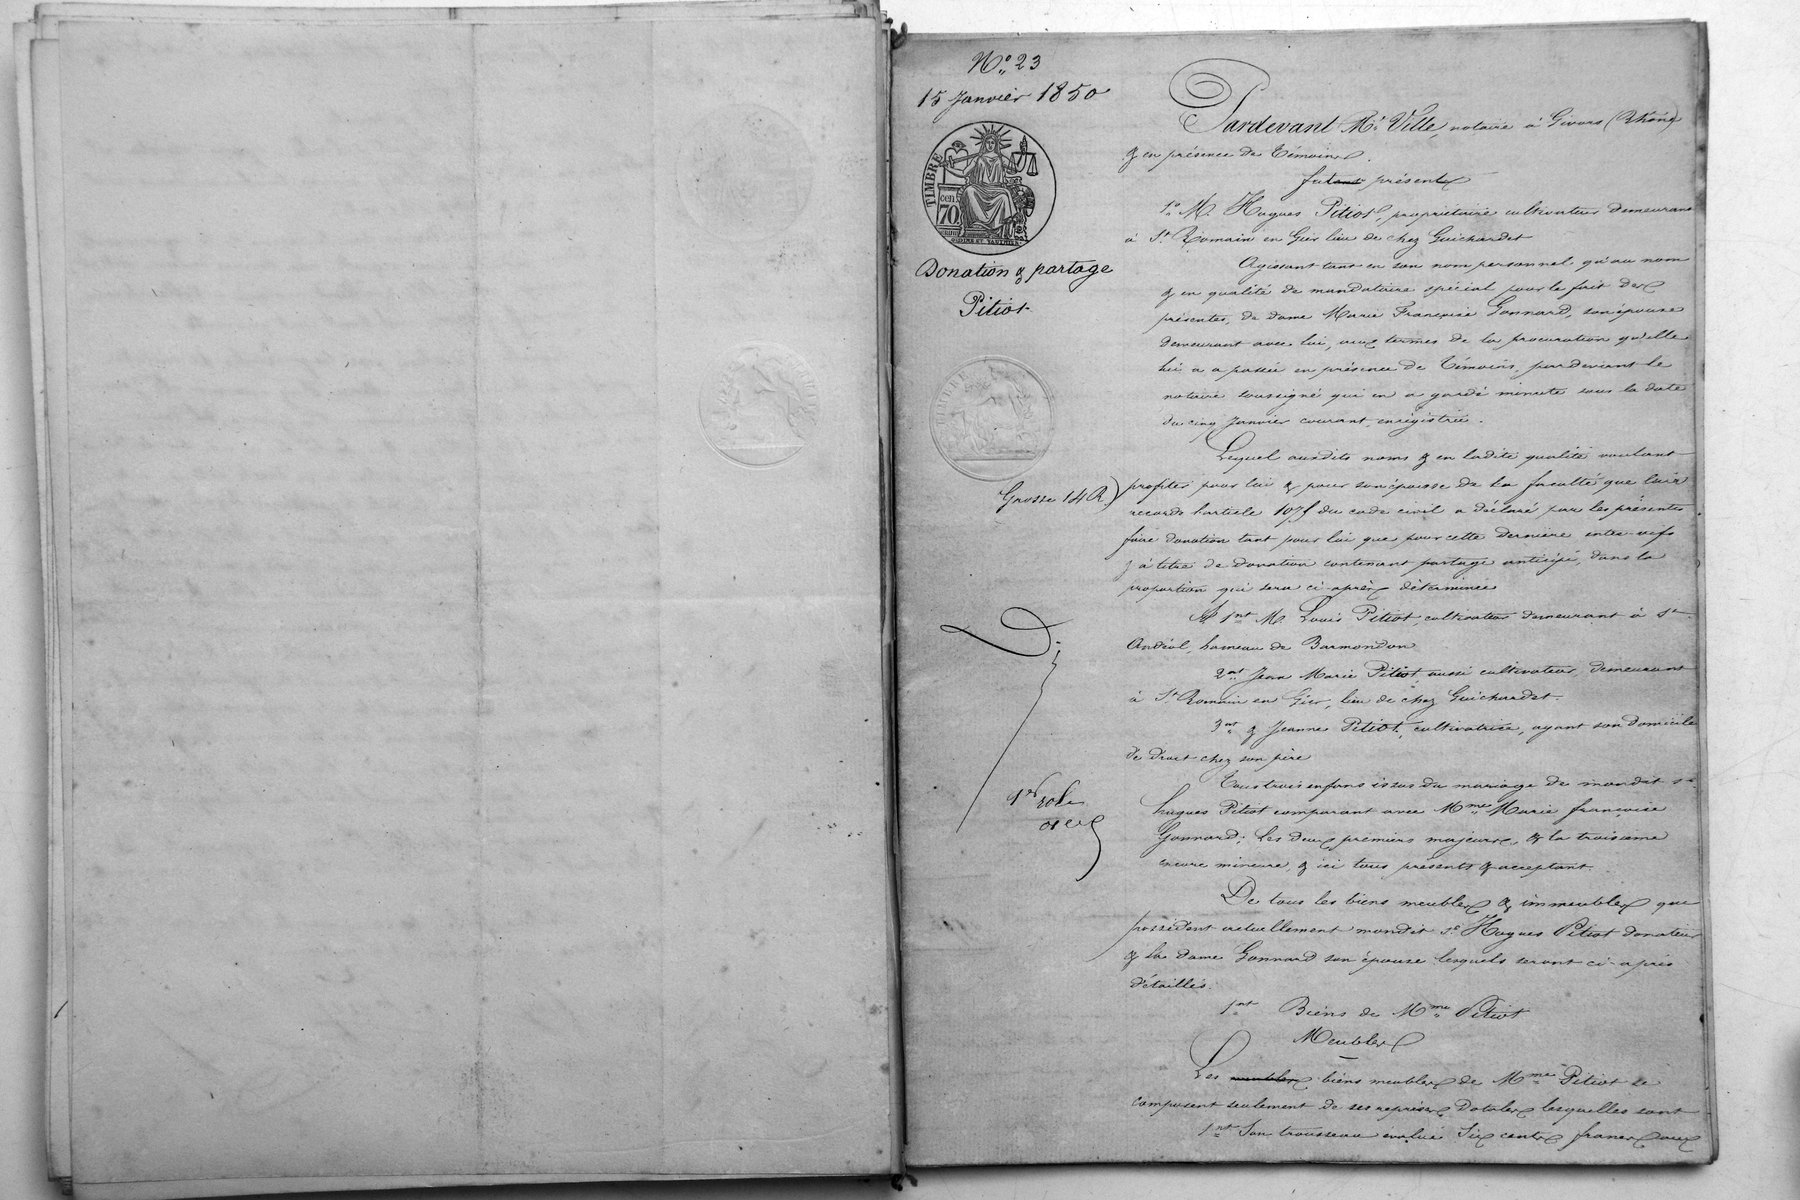 N° 23
15 Janvier 1850
TIMBRE
cen
70
Donation & partage
Pitiot
TIMBRE
Grosse 14 R.
1er rôle
Pardevant Me Ville, notaire à Givors (Rhône)
& en présence de témoins.
fut présent
1° M. Hugues Pitiot, propriétaire cultivateur demeurant
à St Romain en Gier lieu de chez Guichardet
Agissant tant en son nom personnel qu'au nom
& en qualité de mandataire spécial pour le fait des
présentes, de dame Marie Françoise Gonnard, son épouse
demeurant avec lui, aux termes de la procuration qu'elle
lui a a passée en présence de témoins, pardevant le
notaire soussigné qui en a gardé minute sous la date
du cinq Janvier courant, enregistrée.
Lequel auxdits noms & en ladite qualité voulant
profiter pour lui & pour son épouse de la faculté que leur
accorde l'article 1075 du code civil a déclaré par les présentes
faire donation tant pour lui que pour cette dernière entre-vifs
& à titre de donation contenant partage anticipé, dans la
proportion qui sera ci-après déterminée
A 1ent M. Louis Pitiot, cultivateur demeurant à St
Andéol, hameau de Barmondon
2ent Jean Marie Pitiot, aussi cultivateur, demeurant
à St Romain en Gier, lieu de chez Guichardet.
3ent & Jeanne Pitiot, cultivatrice, ayant son domicile
de droit chez son père
Tous trois enfans issus du mariage de mondit sr
hugues Pitiot comparant avec Mme Marie françoise
Gonnard; les deux premiers majeurs, & la troisième
encore mineure, & ici tous présents & acceptant.
De tous les biens meubles & immeubles que
possèdent actuellement mondit sr Hugues Pitiot donateur
& la dame Gonnard son épouse lesquels seront ci-après
détaillés.
1ent Biens de Mme Pitiot
Meubles
Les meubles biens meubles de Mme Pitiot se
composent seulement de ses reprises dotales lesquelles sont
1ent Son trousseau évalué Six cents francs aux